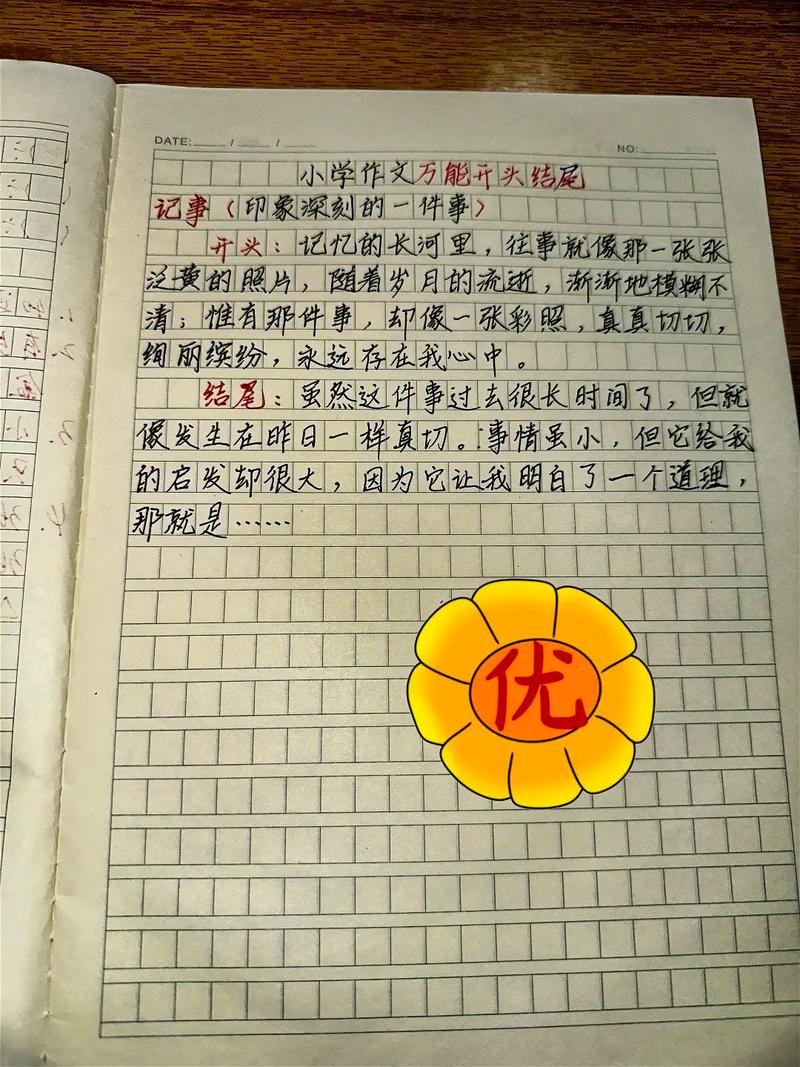 DATE: / /
NO:
小学作文万能开头结尾
记事（印象深刻的一件事）
开头：记忆的长河里，往事就像那一张张
泛黄的照片，随着岁月的流逝，渐渐地模糊不
清；惟有那件事，却像一张彩照，真真切切，
绚丽缤纷，永远存在我心中。
结尾：虽然这件事过去很长时间了，但就
像发生在昨日一样真切。事情虽小，但它给我
的启发却很大，因为它让我明白了一个道理，
那就是……
优